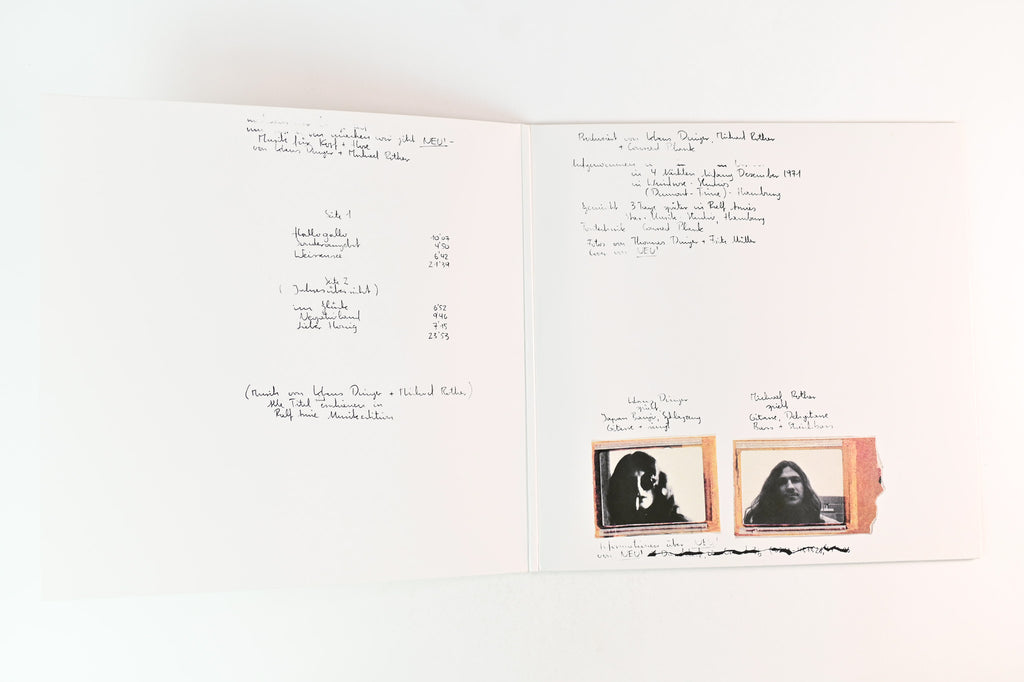 wir jetzt NEU! -
Musik für Kopf + Hose
von Klaus Dinger + Michael Rother
Seite 1
Hallogallo 10'07
Sonderangebot 4'50
Weissensee 6'42
21'39
Seite 2
( Jahresübersicht )
im Glück 6'52
Negativland 9'46
lieber Honig 7'15
23'53
(Musik von Klaus Dinger + Michael Rother)
Alle Titel erschienen in
Ralf Arnie Musikedition
Produziert von Klaus Dinger, Michael Rother
+ Conrad Plank
Aufgenommen
in 4 Nächten Anfang Dezember 1971
in Windrose - Studios
(Dumont - Time) - Hamburg
Gemischt 3 Tage später in Ralf Arnies
Star - Musik Studio, Hamburg
Tontechnik Conrad Plank
Fotos von Thomas Dinger + Fritz Müller
Cover von NEU!
Klaus Dinger
spielt
Japan Banjo, Schlagzeug
Gitarre + singt
Michael Rother
spielt
Gitarre, Dehgitarre
Bass + Streichbass
Informationen über NEU!
von NEU!